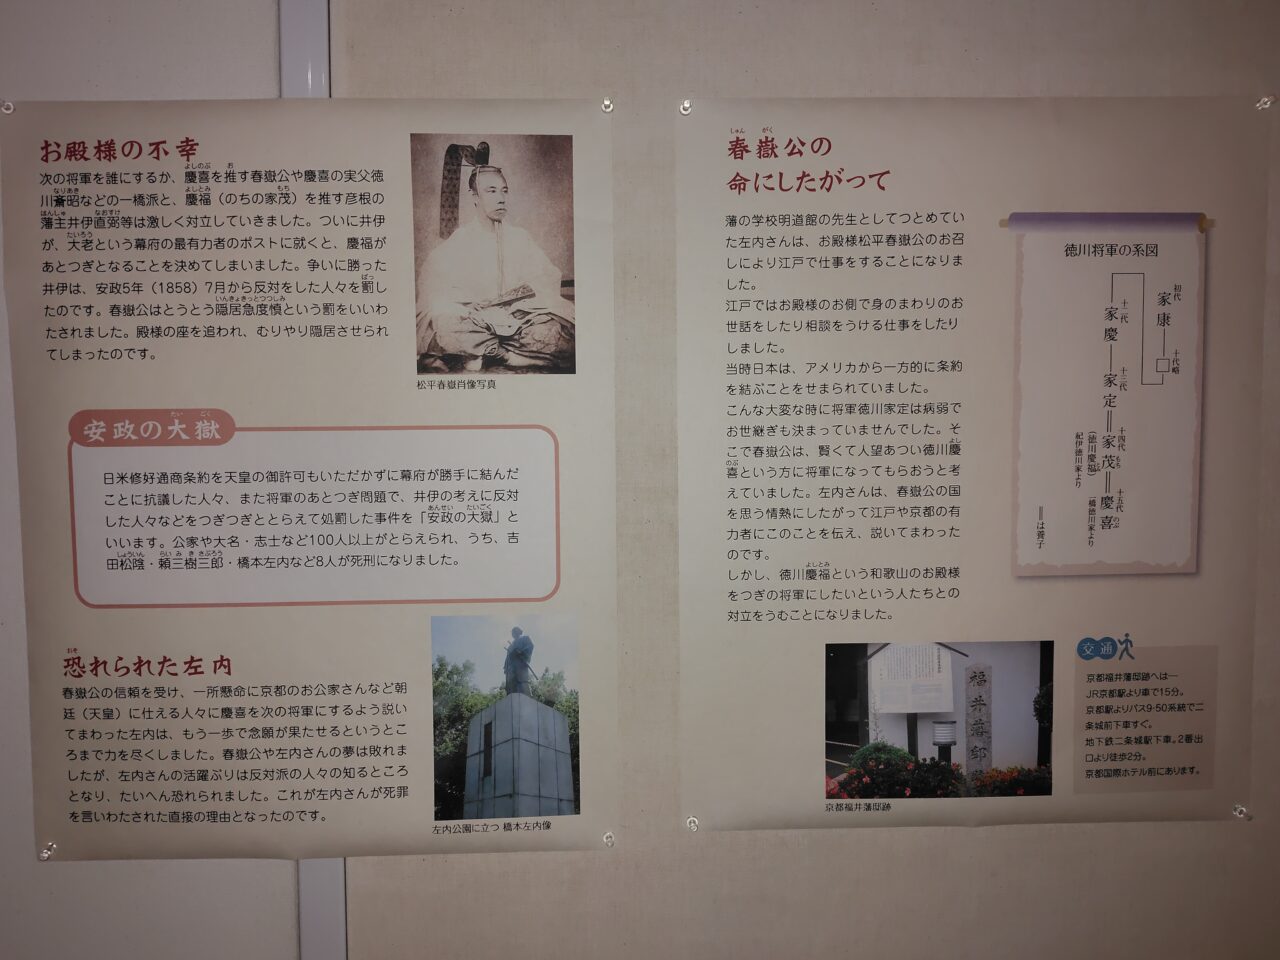 お殿様の不幸
次の将軍を誰にするか、慶喜を推す春嶽公や慶喜の実父徳
川斎昭などの一橋派と、慶福（のちの家茂）を推す彦根の
藩主井伊直弼等は激しく対立していきました。ついに井伊
が、大老という幕府の最有力者のポストに就くと、慶福が
あとつぎとなることを決めてしまいました。争いに勝った
井伊は、安政5年（1858）7月から反対をした人々を罰し
たのです。春嶽公はとうとう隠居急度慎という罰をいいわ
たされました。殿様の座を追われ、むりやり隠居させられ
てしまったのです。
松平春嶽肖像写真
安政の大獄
日米修好通商条約を天皇の御許可もいただかずに幕府が勝手に結んだ
ことに抗議した人々、また将軍のあとつぎ問題で、井伊の考えに反対
した人々などをつぎつぎととらえて処罰した事件を「安政の大獄」と
いいます。公家や大名・志士など100人以上がとらえられ、うち、吉
田松陰・頼三樹三郎・橋本左内など8人が死刑になりました。
恐れられた左内
春嶽公の信頼を受け、一所懸命に京都のお公家さんなど朝
廷（天皇）に仕える人々に慶喜を次の将軍にするよう説い
てまわった左内は、もう一歩で念願が果たせるというとこ
ろまで力を尽くしました。春嶽公や左内さんの夢は敗れま
したが、左内さんの活躍ぶりは反対派の人々の知るところ
となり、たいへん恐れられました。これが左内さんが死罪
を言いわたされた直接の理由となったのです。
左内公園に立つ 橋本左内像
春嶽公の
命にしたがって
藩の学校明道館の先生としてつとめてい
た左内さんは、お殿様松平春嶽公のお召
しにより江戸で仕事をすることになりま
した。
江戸ではお殿様のお側で身のまわりのお
世話をしたり相談をうける仕事をしたり
しました。
当時日本は、アメリカから一方的に条約
を結ぶことをせまられていました。
こんな大変な時に将軍徳川家定は病弱で
お世継ぎも決まっていませんでした。そ
こで春嶽公は、賢くて人望あつい徳川慶
喜という方に将軍になってもらおうと考
えていました。左内さんは、春嶽公の国
を思う情熱にしたがって江戸や京都の有
力者にこのことを伝え、説いてまわった
のです。
しかし、徳川慶福という和歌山のお殿様
をつぎの将軍にしたいという人たちとの
対立をうむことになりました。
徳川将軍の系図
初代
家康
十代略
十二代
家慶
十三代
家定
十四代
家茂
（徳川慶福）
紀伊徳川家より
十五代
慶喜
一橋徳川家より
＝は養子
福井藩邸
京都福井藩邸跡
交通
京都福井藩邸跡へは―
JR京都駅より車で15分。
京都駅よりバス9・50系統で二
条城前下車すぐ。
地下鉄二条城駅下車。2番出
口より徒歩2分。
京都国際ホテル前にあります。